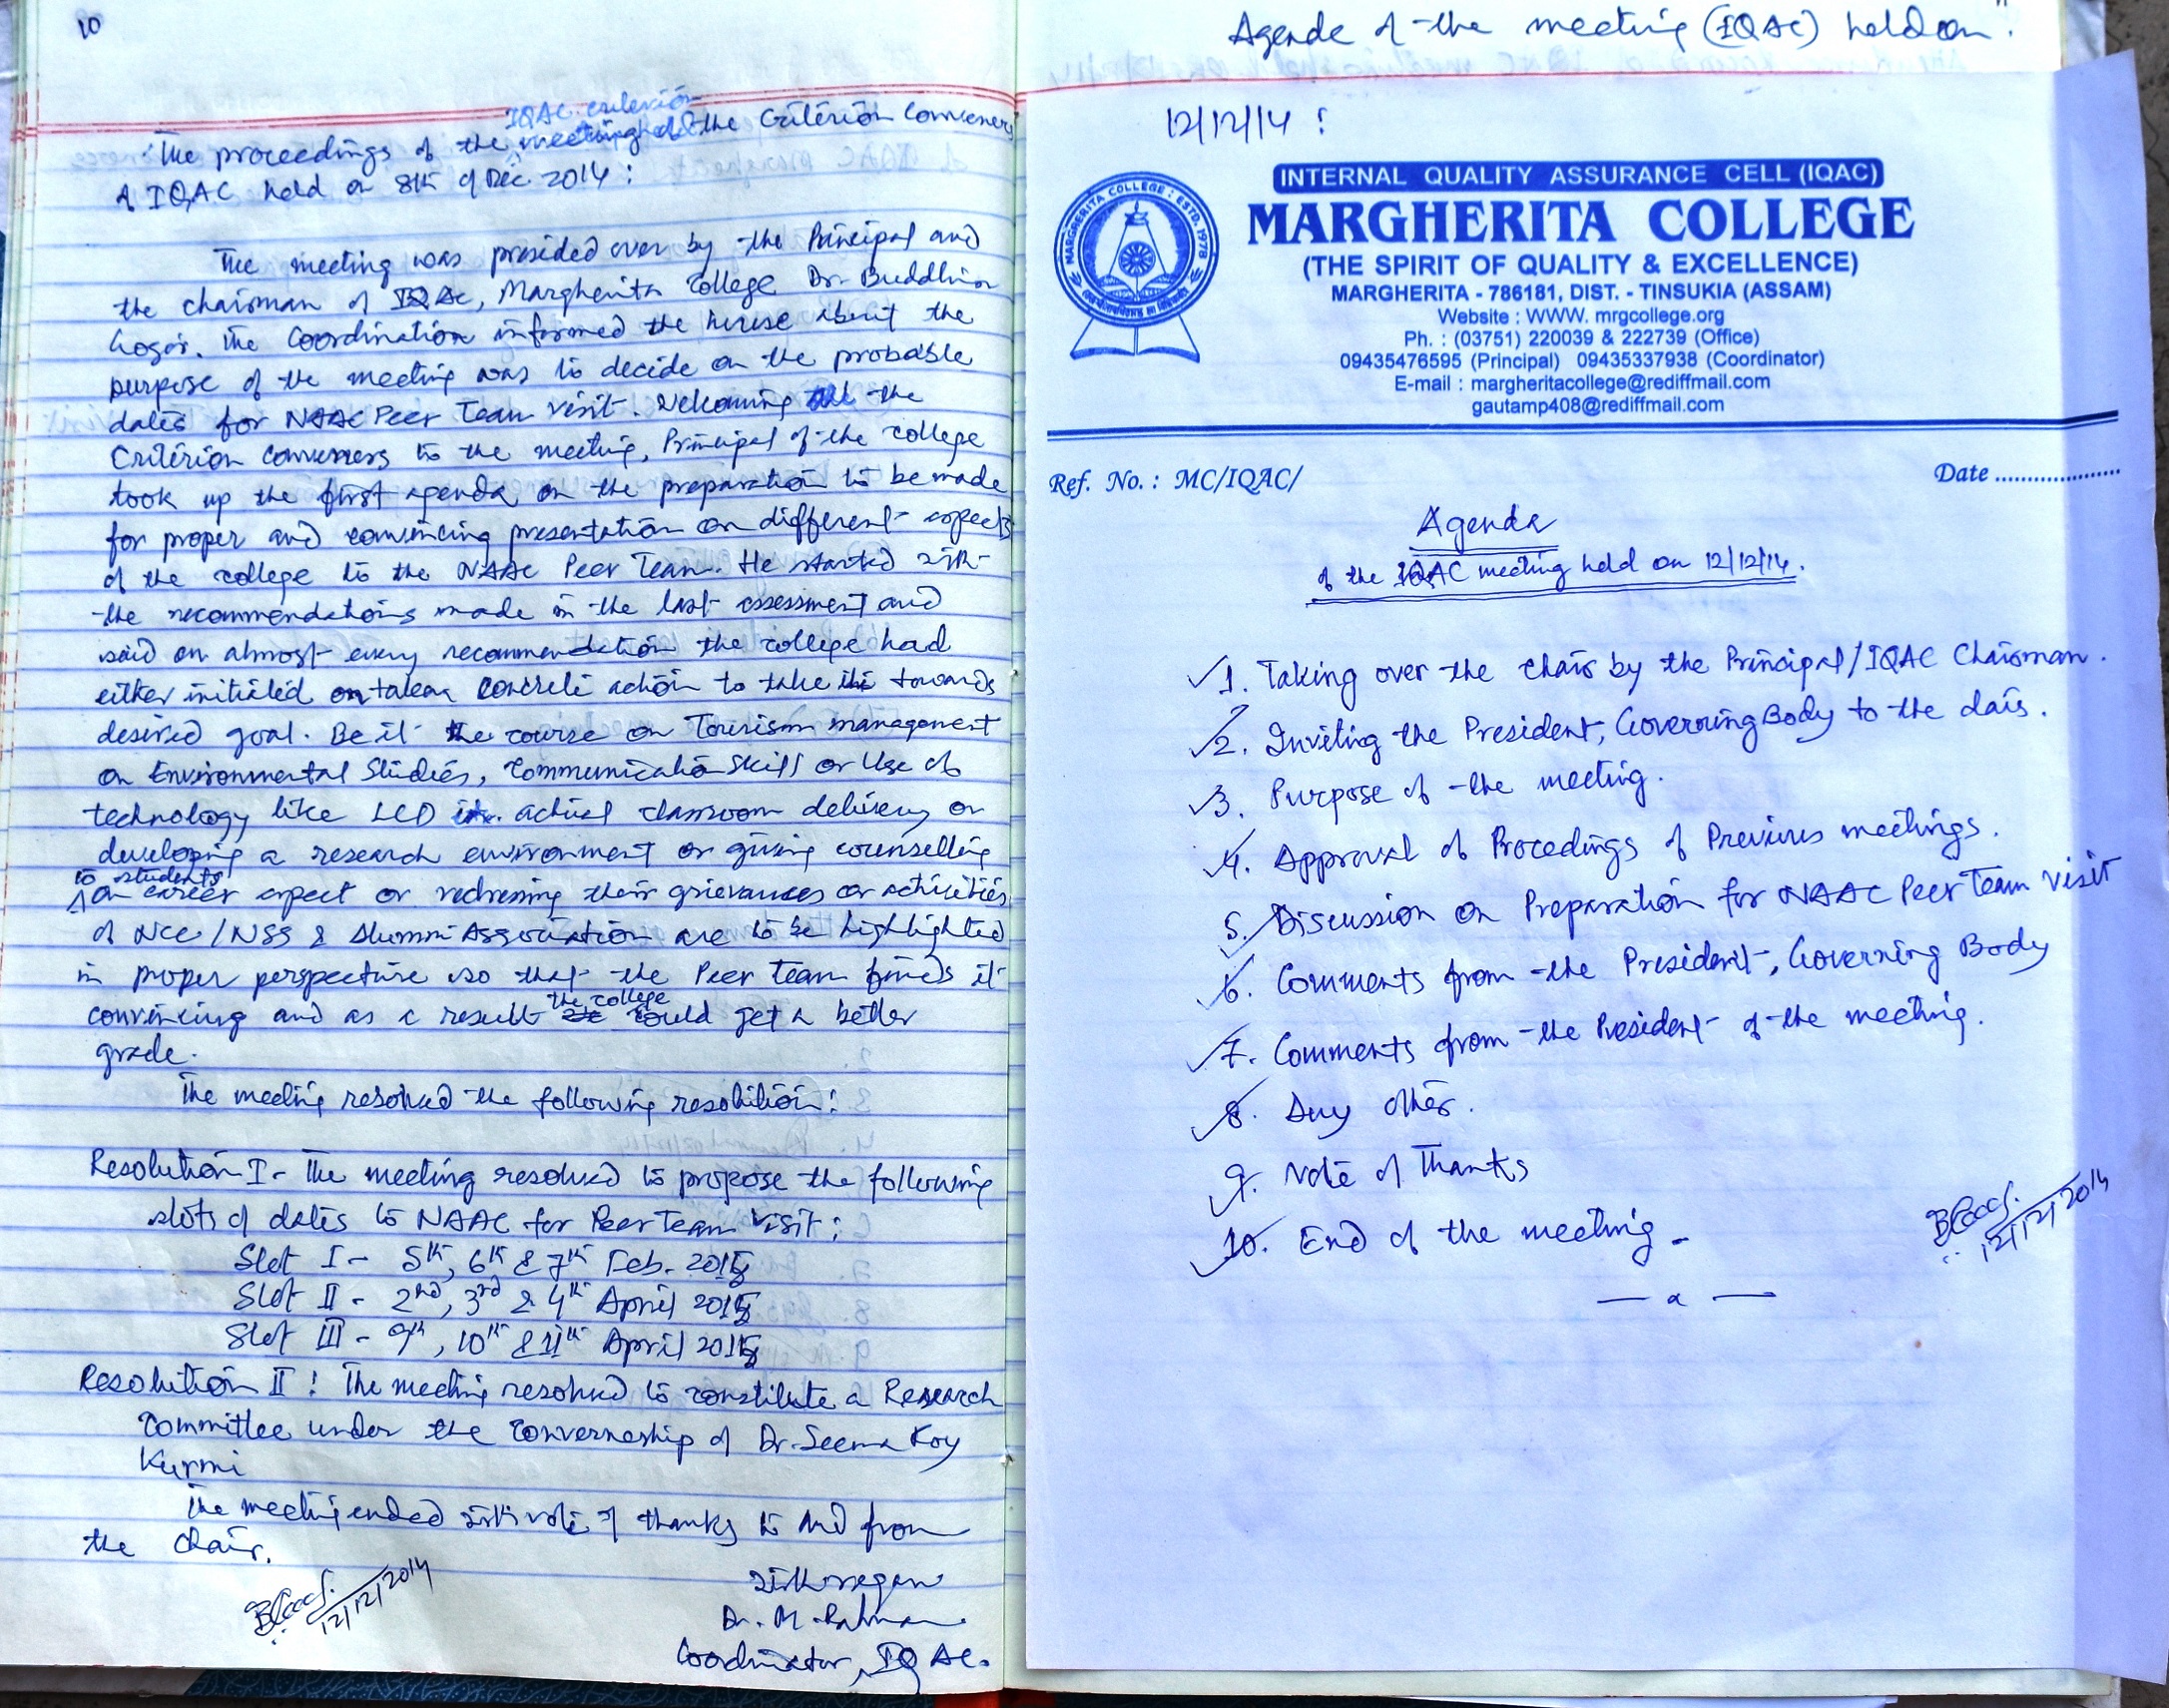 10
IQAC criterion
The proceedings of the meeting of the Criterion Conveners
of IQAC held on 8th of Dec. 2014 :
The meeting was presided over by the Principal and
the chairman of IQAC, Margherita College Dr. Buddhin
Gogoi. The Coordination informed the house about the
purpose of the meeting was to decide on the probable
dates for NAAC Peer Team visit. Welcoming all the
Criterion Conveners to the meeting, Principal of the college
took up the first agenda on the preparation to be made
for proper and convincing presentation on different aspects
of the college to the NAAC Peer Team. He started with
the recommendations made in the last assessment and
said on almost every recommendation the college had
either initiated or taken concrete action to take it towards
desired goal. Be it the course on Tourism management
on Environmental Studies, Communication Skill or Use of
technology like LCD in actual classroom delivery or
developing a research environment or giving counselling
to students
on career aspect or redressing their grievances or activities
of NCC/NSS & Alumni Association are to be highlighted
in proper perspective so that the Peer Team finds it
the college
convincing and as a result could get a better
grade.
The meeting resolved the following resolution :
Resolution I - The meeting resolved to propose the following
slots of dates to NAAC for Peer Team visit :
Slot I - 5th, 6th & 7th Feb. 2015
Slot II - 2nd, 3rd & 4th April 2015
Slot III - 9th, 10th & 11th April 2015
Resolution II : The meeting resolved to constitute a Research
Committee under the convernership of Dr. Seema Roy
Kurmi
The meeting ended with vote of thanks to and from
the chair.
12/12/2014
With regards
Dr. M. Rahman
Coordinator, IQAC.
Agenda of the meeting (IQAC) held on
12/12/14 :
MARGHERITA COLLEGE : ESTD. 1978
INTERNAL QUALITY ASSURANCE CELL (IQAC)
MARGHERITA COLLEGE
(THE SPIRIT OF QUALITY & EXCELLENCE)
MARGHERITA - 786181, DIST. - TINSUKIA (ASSAM)
Website : WWW. mrgcollege.org
Ph. : (03751) 220039 & 222739 (Office)
09435476595 (Principal) 09435337938 (Coordinator)
E-mail : margheritacollege@rediffmail.com
gautamp408@rediffmail.com
Ref. No. : MC/IQAC/ Date .....................
Agenda
of the IQAC meeting held on 12/12/14.
1. Taking over the chair by the Principal/IQAC Chairman.
2. Inviting the President, Governing Body to the dais.
3. Purpose of the meeting.
4. Approval of Procedings of Previous meetings.
5. Discussion on Preparation for NAAC Peer Team visit
6. Comments from the President, Governing Body
7. Comments from the President of the meeting.
8. Any other.
9. Note of Thanks
10. End of the meeting -
12/12/2014